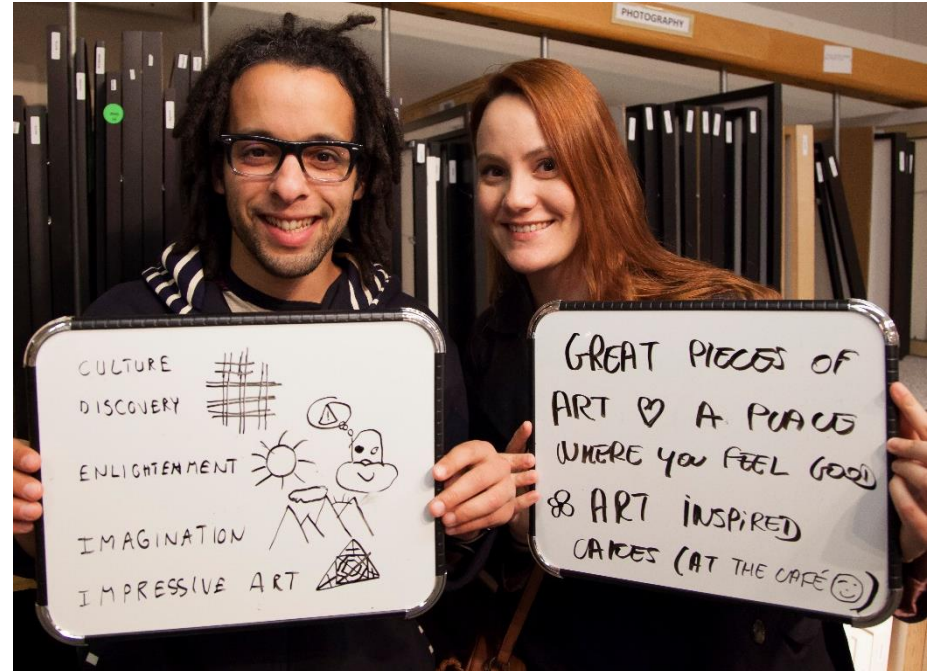 PHOTOGRAPHY
CULTURE
DISCOVERY
ENLIGHTENMENT
IMAGINATION
IMPRESSIVE ART
GREAT PIECES OF
ART ♡ A PLACE
WHERE YOU FEEL GOOD
& ART INSPIRED
CAKES (AT THE CAFÉ ☺)